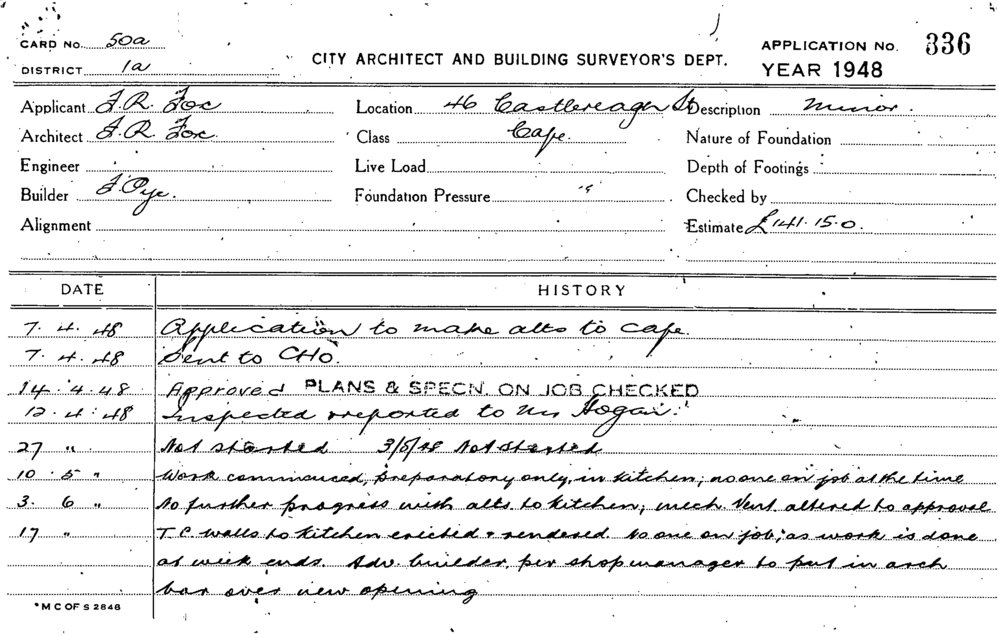 CARD No. 50a
DISTRICT 1a
CITY ARCHITECT AND BUILDING SURVEYOR'S DEPT.
APPLICATION No. 336
YEAR 1948
Applicant F. R. Fox
Location 46 Castlereagh St
Description Minor.
Architect F. R. Fox.
Class Cafe.
Nature of Foundation
Engineer
Live Load
Depth of Footings
Builder F. Pye.
Foundation Pressure
Checked by
Alignment
Estimate £141.15.0.
DATE HISTORY
7. 4. 48 Application to make alts to cafe.
7. 4. 48 Sent to CHO.
14. 4. 48 Approved PLANS & SPECN. ON JOB CHECKED
12. 4. 48 Inspected & reported to Mr Hogan.
27 " Not started 3/5/48 Not Started
10. 5 " Work commenced, preparatory only, in kitchen; no one on job at the time
3. 6 " No further progress with alts. to kitchen; mech. Vent. altered to approval
17 " T.C. walls to kitchen erected & rendered. No one on job; as work is done
at week ends. Adv. builder, per shop manager to put in arch
bar over new opening
*M C OF S 2848